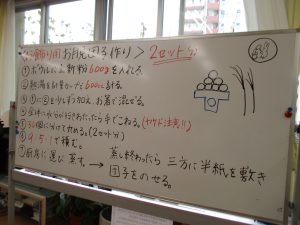 飾り用 お月見団子作り> 2セット分
①ボウルに上新粉600gを入れる。
②熱湯を計量カップに600cc計る。
③①に②を少しずつ加え、お箸で混ぜる。
④全体に水分が行きわたったら手でこねる。(ヤケド注意!!)
⑤30個に分けて丸める。(2セット分)
⑥9・5・1で積む。
⑦厨房に運び蒸す。→
蒸し終わったら 三方に半紙を敷き
団子をのせる。